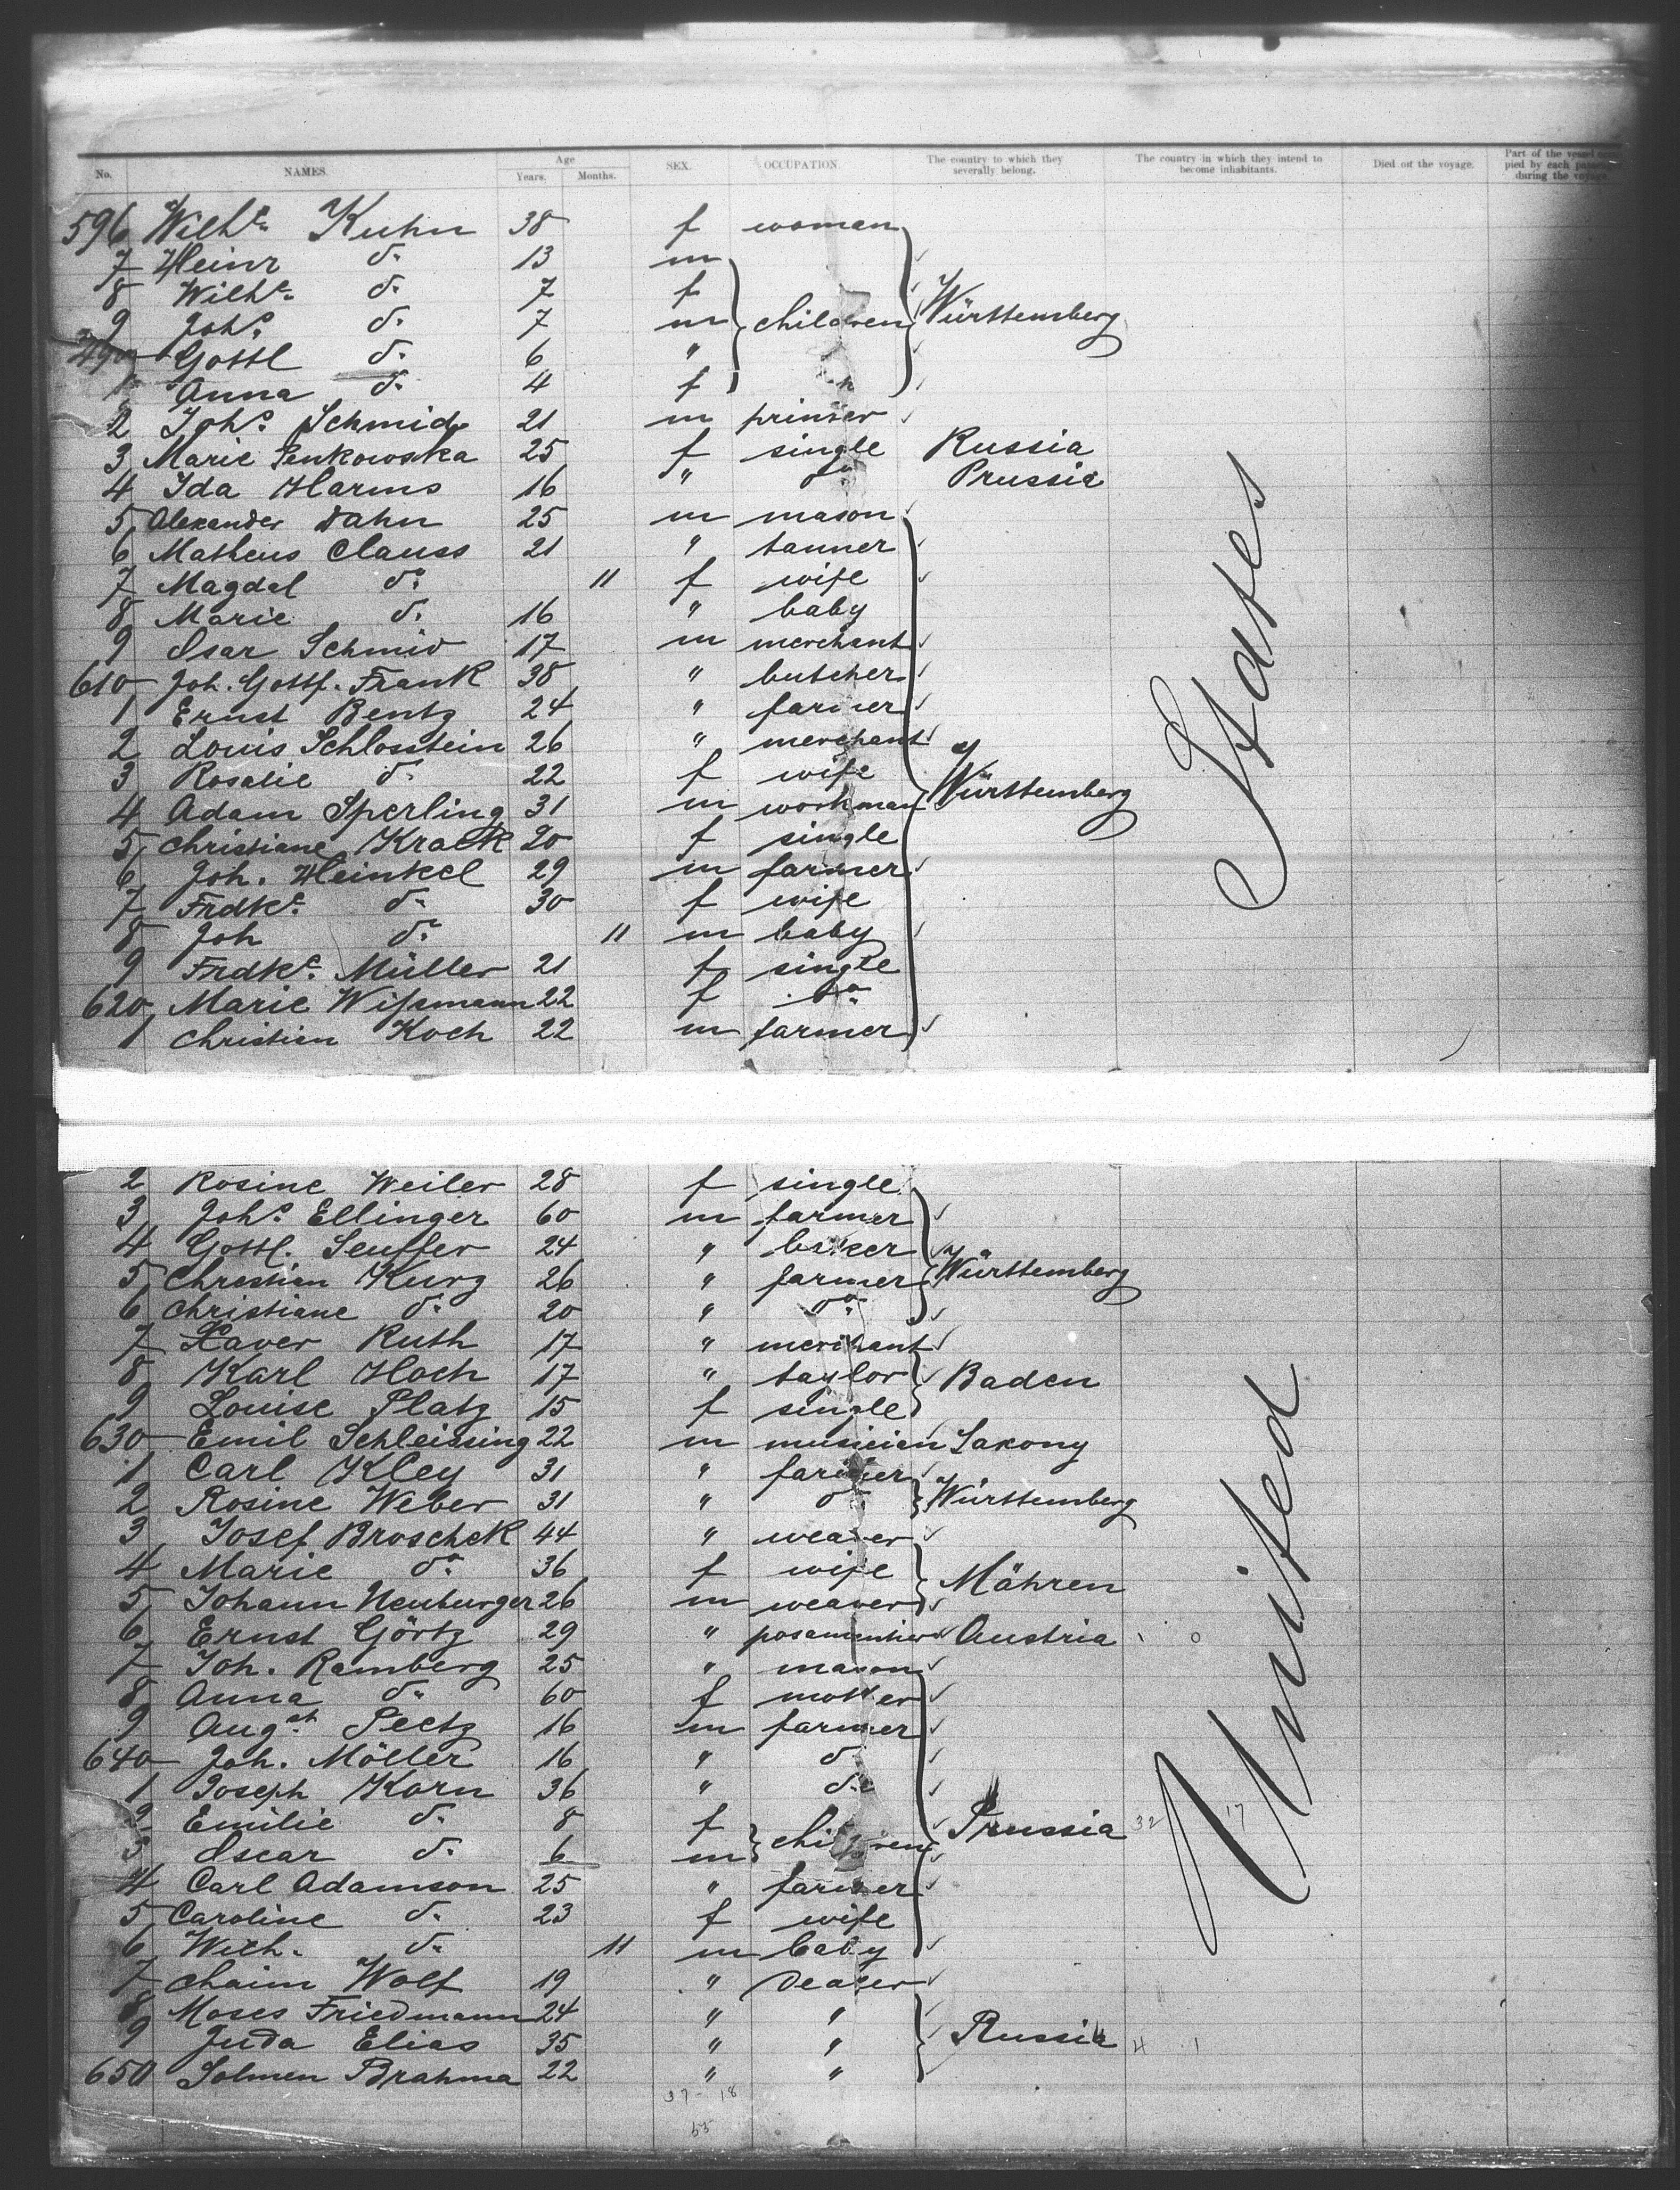 No. NAMES. Age Years. Months. SEX. OCCUPATION. The country to which they severally belong. The country in which they intend to become inhabitants. Died on the voyage. Part of the vessel occupied by each passenger during the voyage.
596 Wilhe. Kuhn 38 f woman
7 Heinr do. 13 m
8 Wilhe. do. 7 f
9 Johs. do. 7 m children Württemberg
Gottl do. 6 "
1 Anna do. 4 f
2 Johs. Schmid 21 m printer
3 Marie Senkowska 25 f single Russia
4 Ida Harms 16 " do. Prussia
5 Alexander Dahn 25 m mason
6 Matheus Clauss 21 " tanner
7 Magdal do. 11 f wife
8 Marie do. 16 " baby
9 Osar Schmid 17 m merchant
610 Joh. Gottf. Frank 38 " butcher
1 Ernst Bentz 24 " farmer
2 Louis Schlosstein 26 " merchant
3 Rosalie do. 22 f wife
4 Adam Sperling 31 m workman Württemberg
5 Christiane Krack 20 f single
6 Joh. Heinkel 29 m farmer
7 Frdke. do. 30 f wife
8 Joh do. 11 m baby
9 Frdke. Müller 21 f single
620 Marie Wißmann 22 f do.
1 Christian Koch 22 m farmer
2 Rosine Weiler 28 f single
3 Johs. Ellinger 60 m farmer
4 Gottl. Seuffer 24 " baker
5 Christian Kurz 26 " farmer Württemberg
6 Christiane do. 20 " do.
7 Xaver Ruth 17 " merchant
8 Karl Hoch 17 " taylor Baden
9 Louise Platz 15 f single
630 Emil Schleissing 22 m musician Saxony
1 Carl Kley 31 " farmer
2 Rosine Weber 31 " do Württemberg
3 Josef Broschek 44 " weaver
4 Marie do. 36 f wife Mähren
5 Johann Neuburger 26 m weaver
6 Ernst Görtz 29 " posamentier Austria
7 Joh. Ramberg 25 " mason
8 Anna do. 60 f mother
9 Augst. Peetz 16 m farmer
640 Joh. Möller 16 " do.
1 Joseph Korn 36 " do.
2 Emilie do. 8 f Prussia 32 17
3 Oscar do. 6 m children
4 Carl Adamson 25 " farmer
5 Caroline do. 23 f wife
6 Wilh. do. 11 m baby
7 Chaim Wolf 19 " Dealer
8 Moses Friedmann 24 " "
9 Juda Elias 35 " " Russia 4 1
650 Solmen Brahma 22 " "
37 - 18
55
United States